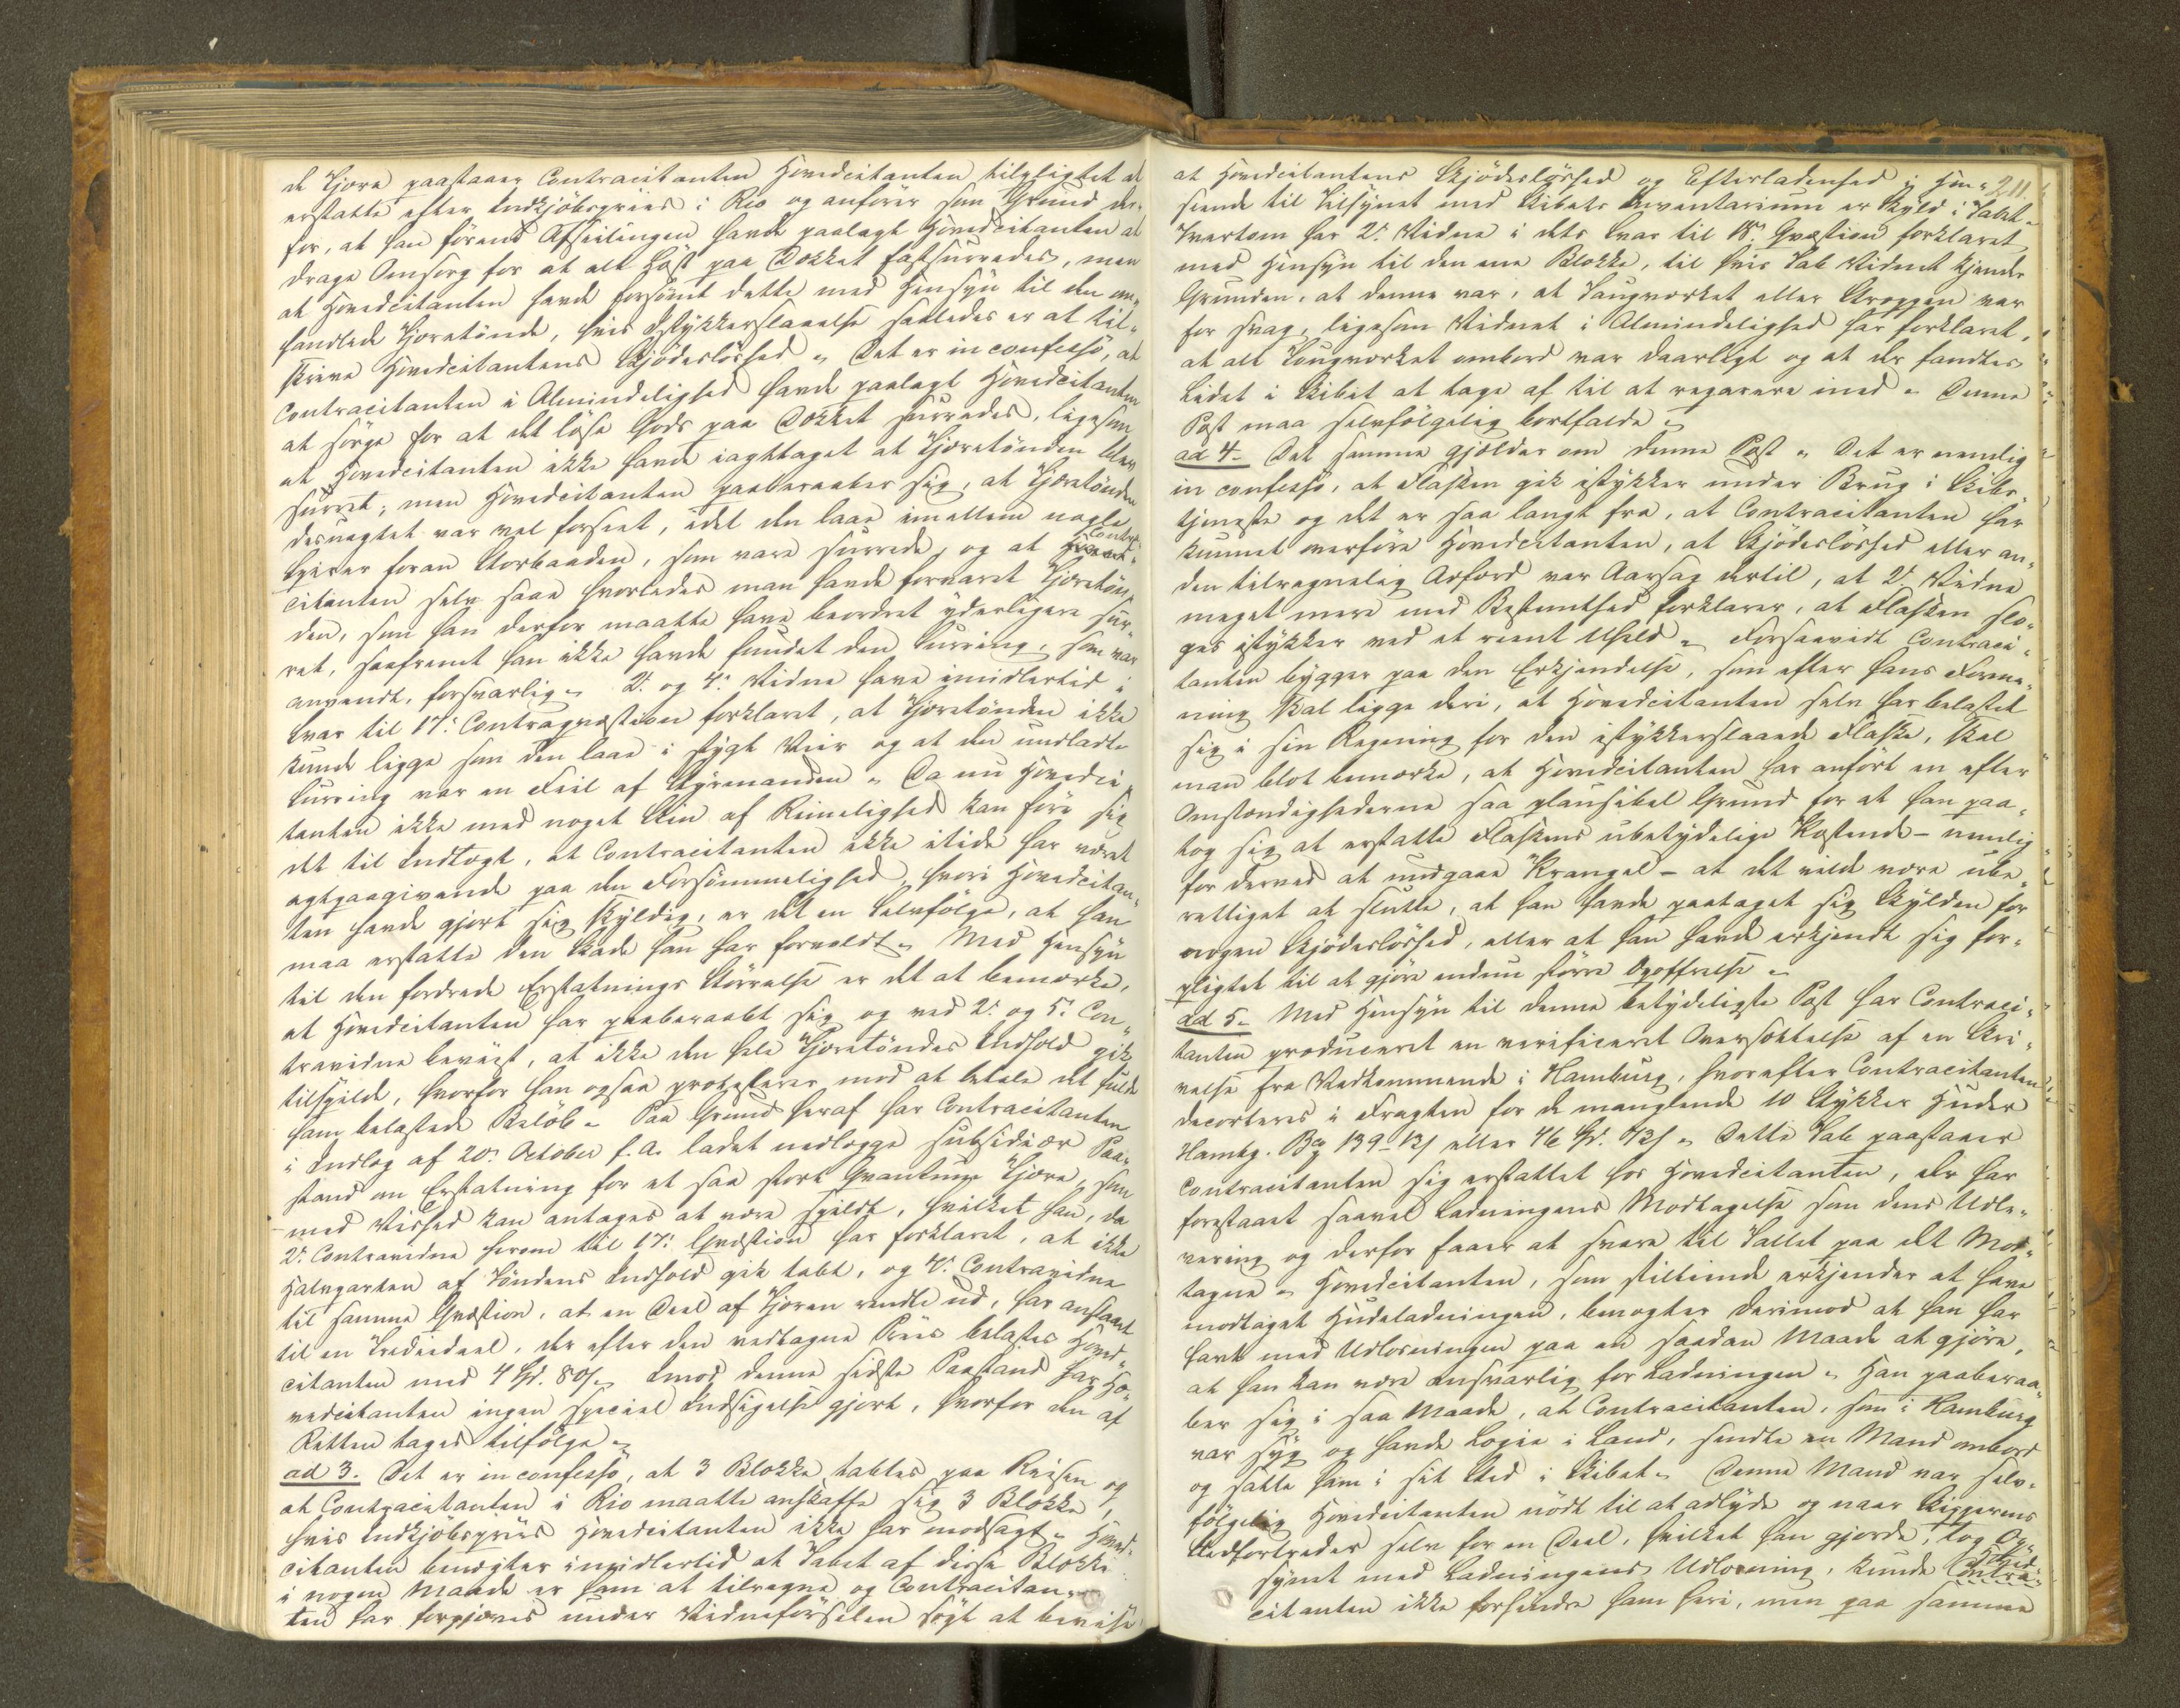 de Tjære paastaaer Contracitanten Hovedcitanten tilpligtet at
erstatte efter Indkjöbspriis i Rio og anförer som Grund der-
for, at han förend Afseilingen havde paalagt Hovedcitanten at
drage Omsorg for at alt Löst paa Dækket fastsurredes, men
at Hovedcitanten havde forsömt dette med Hensyn til den om-
handlede Tjæretönde, hvis Istykkerslaaelse saaledes er at til-
skrive Hovedcitantens Skjödeslöshed. Det er in confesso, at
Contracitanten i Almindelighed havde paalagt Hovedcitanten
at sörge for at det löse Gods paa Dækket surredes, ligesom
at Hovedcitanten ikke havde iagttaget at Tjæretönden blev
surret; men Hovedcitanten paaberaaber sig, at Tjæretönden
desuagtet var vel forseet, idet den laae imellem nogle
Spirer foran Storbaaden, som vare surrede, og at Contra-
citanten selv saae hvorledes man havde forvaret Tjæretön-
den, som han derfor maatte have beordret yderligere sur-
ret, saafremt han ikke havde fundet den Surring, som var
anvendt, forsvarlig. 2. og 4. Vidne have imidlertid i
Svar til 17. Contraqvæstion forklaret, at Tjæretönden ikke
kunde ligge som den laae i stygt Veir og at den undladte
Surring var en Feil af Styrmanden. Da nu Hovedci-
tanten ikke med noget Skin af Rimelighed kan före sig
det til Indtægt, at Contracitanten ikke itide har været
agtpaagivende paa den Forsömmelighed, hvori Hovedcitan-
ten havde gjort sig skyldig, er det en Selvfölge, at han
maa erstatte den Skade han har forvoldt. Med Hensyn
til den fordrede Erstatnings Störrelse er det at bemærke,
at Hovedcitanten har paaberaabt sig og ved 2. og 5. Con-
travidne beviist, at ikke den hele Tjæretöndes Indhold gik
tilspilde, hvorfor han ogsaa protesterer mod at betale det fulde
ham belastede Belöb. Paa Grund heraf har Contracitanten
i Indlæg af 20. October f. A. ladet nedlægge subsidiær Paa-
stand om Erstatning for et saa stort Qvantum Tjære, som
med Vished kan antages at være spildt, hvilket han, da
2. Contravidne herom til 17. Qvæstion har forklaret, at ikke
Halvparten af Töndens Indhold gik tabt, og 4. Contravidne
til samme Qvæstion, at en Deel af Tjæren rendte ud, har anslaaet
til en Trediedeel, der efter den vedtagne Priis belastes Hoved-
citanten med 4 Spd. 80 s. Imod denne sidste Paastand har Ho-
vedcitanten ingen speciel Indsigelse gjort, hvorfor den af
Retten tages tilfölge.
ad 3. Det er in confesso, at 3 Blokke tabtes paa Reisen og
at Contracitanten i Rio maatte anskaffe sig 3 Blokke,
hvis Indkjöbspriis Hovedcitanten ikke har modsagt. Hoved-
citanten benægter imidlertid at Tabet af disse Blokke
i nogen Maade er ham at tilregne og Contracitan-
ten har forgjæves under Vidneförselen sögt at bevise
211
at Hovedcitantens Skjödeslöshed og Efterladenhed i Hen-
seende til Tilsynet med Skibets Inventarium er Skyld i Tabet.
Tvertom har 2. Vidne i dets Svar til 18. Qvæstion forklaret
med Hensyn til den ene Blokke, til hvis Tab Vidnet kjender
Grunden, at denne var, at Taugværket eller Stroppen var
for svag, ligesom Vidnet i Almindelighed har forklaret,
at alt Taugværket ombord var daarligt og at der fandtes
Lidet i Skibet at tage af til at reparere med. Denne
Post maa selvfölgelig bortfalde.
ad 4. Det samme gjælder om denne Post. Det er nemlig
in confesso, at Flasken gik istykker under Brug i Skibs-
tjeneste og det er saa langt fra, at Contracitanten har
kunnet overföre Hovedcitanten, at Skjödeslöshed eller an-
den tilregnelig Adfærd var Aarsag dertil, at 2. Vidne
meget mere med Bestemthed forklarer, at Flasken slo-
ges istykker ved et reent Uheld. Forsaavidt Contraci-
tanten bygger paa den Erkjendelse, som efter hans Forme-
ning skal ligge deri, at Hovedcitanten selv har belastet
sig i sin Regning for den istykkerslaaede Flaske, skal
man blot bemærke, at Hovedcitanten har anfört en efter
Omstændighederne saa plausibel Grund for at han paa-
tog sig at erstatte Flaskens ubetydelige Kostende – nemlig
for derved at undgaae Krangel – at det vilde være ube-
rettiget at slutte, at han havde paataget sig Skylden for
nogen Skjödeslöshed, eller at han havde erkjendt sig for-
pligtet til at gjöre endnu större Opoffrelse.
ad 5. Med Hensyn til denne betydeligste Post har Contraci-
tanten produceret en verificeret Oversættelse af en Skri-
velse fra Vedkommende i Hamburg, hvorefter Contracitanten
decorteres i Fragten for de manglende 10 Stykker Huder
Hambg. Bco 139 – 12 s eller 46 Spd. 72 s. Dette Tab paastaaer
Contracitanten sig erstattet hos Hovedcitanten, der har
forestaaet saavel Ladningens Modtagelse som dens Udle-
vering og derfor faaer at svare til Tallet paa det Mod-
tagne. Hovedcitanten, som stiltiende erkjender at have
modtaget Hudeladningen, benægter derimod at han har
havt med Udlosningen paa en saadan Maade at gjöre,
at han kan være ansvarlig for Ladningen. Han paaberaa-
ber sig i saa Maade, at Contracitanten, som i Hamburg
var syg og havde Logie i Land, sendte en Mand ombord
og satte ham i sit Sted i Skibet. Denne Mand var selv-
fölgelig Hovedcitanten nödt til at adlyde og naar Skipperens
Stedfortræder selv for en Deel, hvilket han gjorde, tog Op-
synet med Ladningens Udlosning, kunde Hoved-
citanten ikke forhindre ham heri, men paa samme